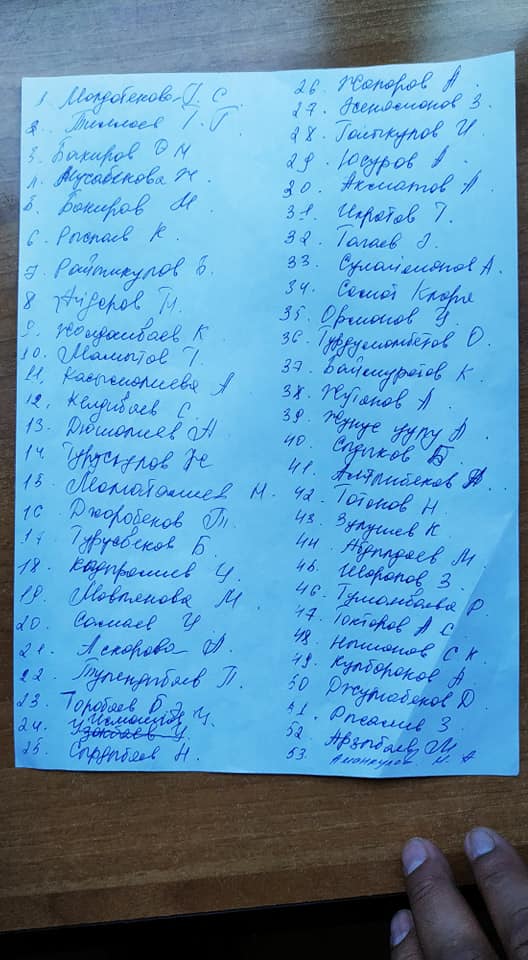 1 Молдобекова Г. С.
2. Тиллаев Т. Т.
3. Бакиров Э М
4. Мусабекова Ж.
5. Бакиров М.
6. Рыспаев К.
7. Райымкулов Б.
8 Айдаров М.
9. Жолдошбаев К
10. Мамытов Т.
11. Касымалиева А
12. Келдибаев С.
13. Дюшалиев А
14 Турускулов Ж
15. Маматалиев М.
16 Джоробеков Т.
17. Турусбеков Б.
18. Кадыралиев Ч.
19. Мовлянова М.
20. Самаев У.
21. Аскарова А.
22. Тулендыбаев П.
23. Торобаев Б Э
24. Исмаилов У.
25. Сыдыбаев Н.
26. Жапоров А.
27. Эсеналионов З.
28. Галыкулов И.
29. Юсуров А
30. Акматов А.
31. Икратов Т.
32. Талаев Э.
33. Сулайманов А.
34. Самат Клара
35. Орманов Ц.
36. Турдумамбетов О.
37. Баймуратов К.
38. Жутанов А.
39. Жунус уулу А.
40. Сыдыков Б
41. Алтыбеков А.
42. Татанов Н.
43. Зулушев К.
44. Абдылдаев М.
45. Шарапов З.
46. Туманбаева Р.
47. Токторов А С.
48. Нышанов С К.
49. Кулбораков А.
50. Джумабеков Д.
51. Рысалиев З.
52. Арзыбаев М
53. Аманкулов Н. А